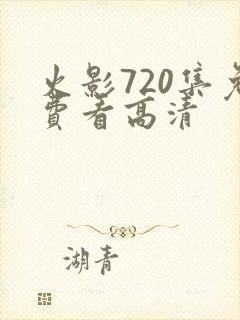 火影720集免
費看高清
湖青